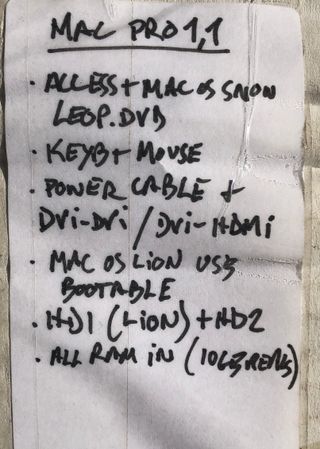 MAC PRO 1,1
· ACCESS + MAC OS SNOW
LEOP. DVD
· KEYB + MOUSE
· POWER CABLE +
DVI-DVI / DVI-HDMI
· MAC OS LION USB
BOOTABLE
· HD1 (LION) + HD2
· ALL RAM IN (10GB